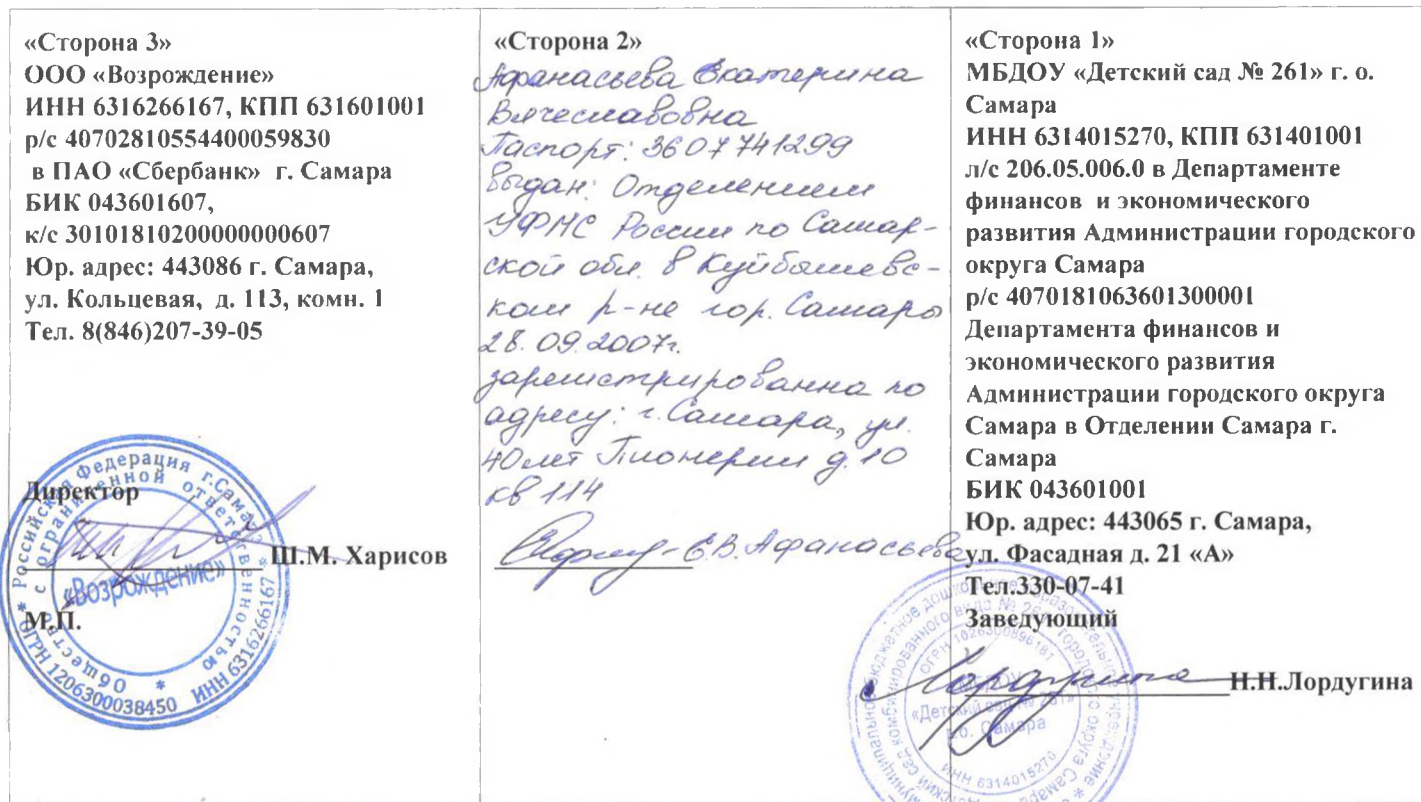 «Сторона 3»
ООО «Возрождение»
ИНН 6316266167, КПП 631601001
р/с 40702810554400059830
в ПАО «Сбербанк» г. Самара
БИК 043601607,
к/с 30101810200000000607
Юр. адрес: 443086 г. Самара,
ул. Кольцевая, д. 113, комн. 1
Тел. 8(846)207-39-05
Директор
Ш.М. Харисов
М.П.
* Российская Федерация г.Самара * ОГРН 1206300038450 ИНН 6316266167
Общество с ограниченной ответственностью *
«Возрождение»
«Сторона 2»
Афанасьева Екатерина
Вячеславовна
Паспорт: 3607 741299
выдан: Отделением
УФМС России по Самар-
ской обл. в Куйбышевс-
ком р-не гор. Самары
28.09.2007г.
зарегистрированна по
адресу: г. Самара, ул.
40 лет Пионерии д. 10
кв 114
Е.В. Афанасьева
«Сторона 1»
МБДОУ «Детский сад № 261» г. о.
Самара
ИНН 6314015270, КПП 631401001
л/с 206.05.006.0 в Департаменте
финансов и экономического
развития Администрации городского
округа Самара
р/с 4070181063601300001
Департамента финансов и
экономического развития
Администрации городского округа
Самара в Отделении Самара г.
Самара
БИК 043601001
Юр. адрес: 443065 г. Самара,
ул. Фасадная д. 21 «А»
Тел.330-07-41
Заведующий
Н.Н.Лордугина
ОГРН 1026300896181
«Детский сад № 261»
г.о. Самара
ИНН 6314015270